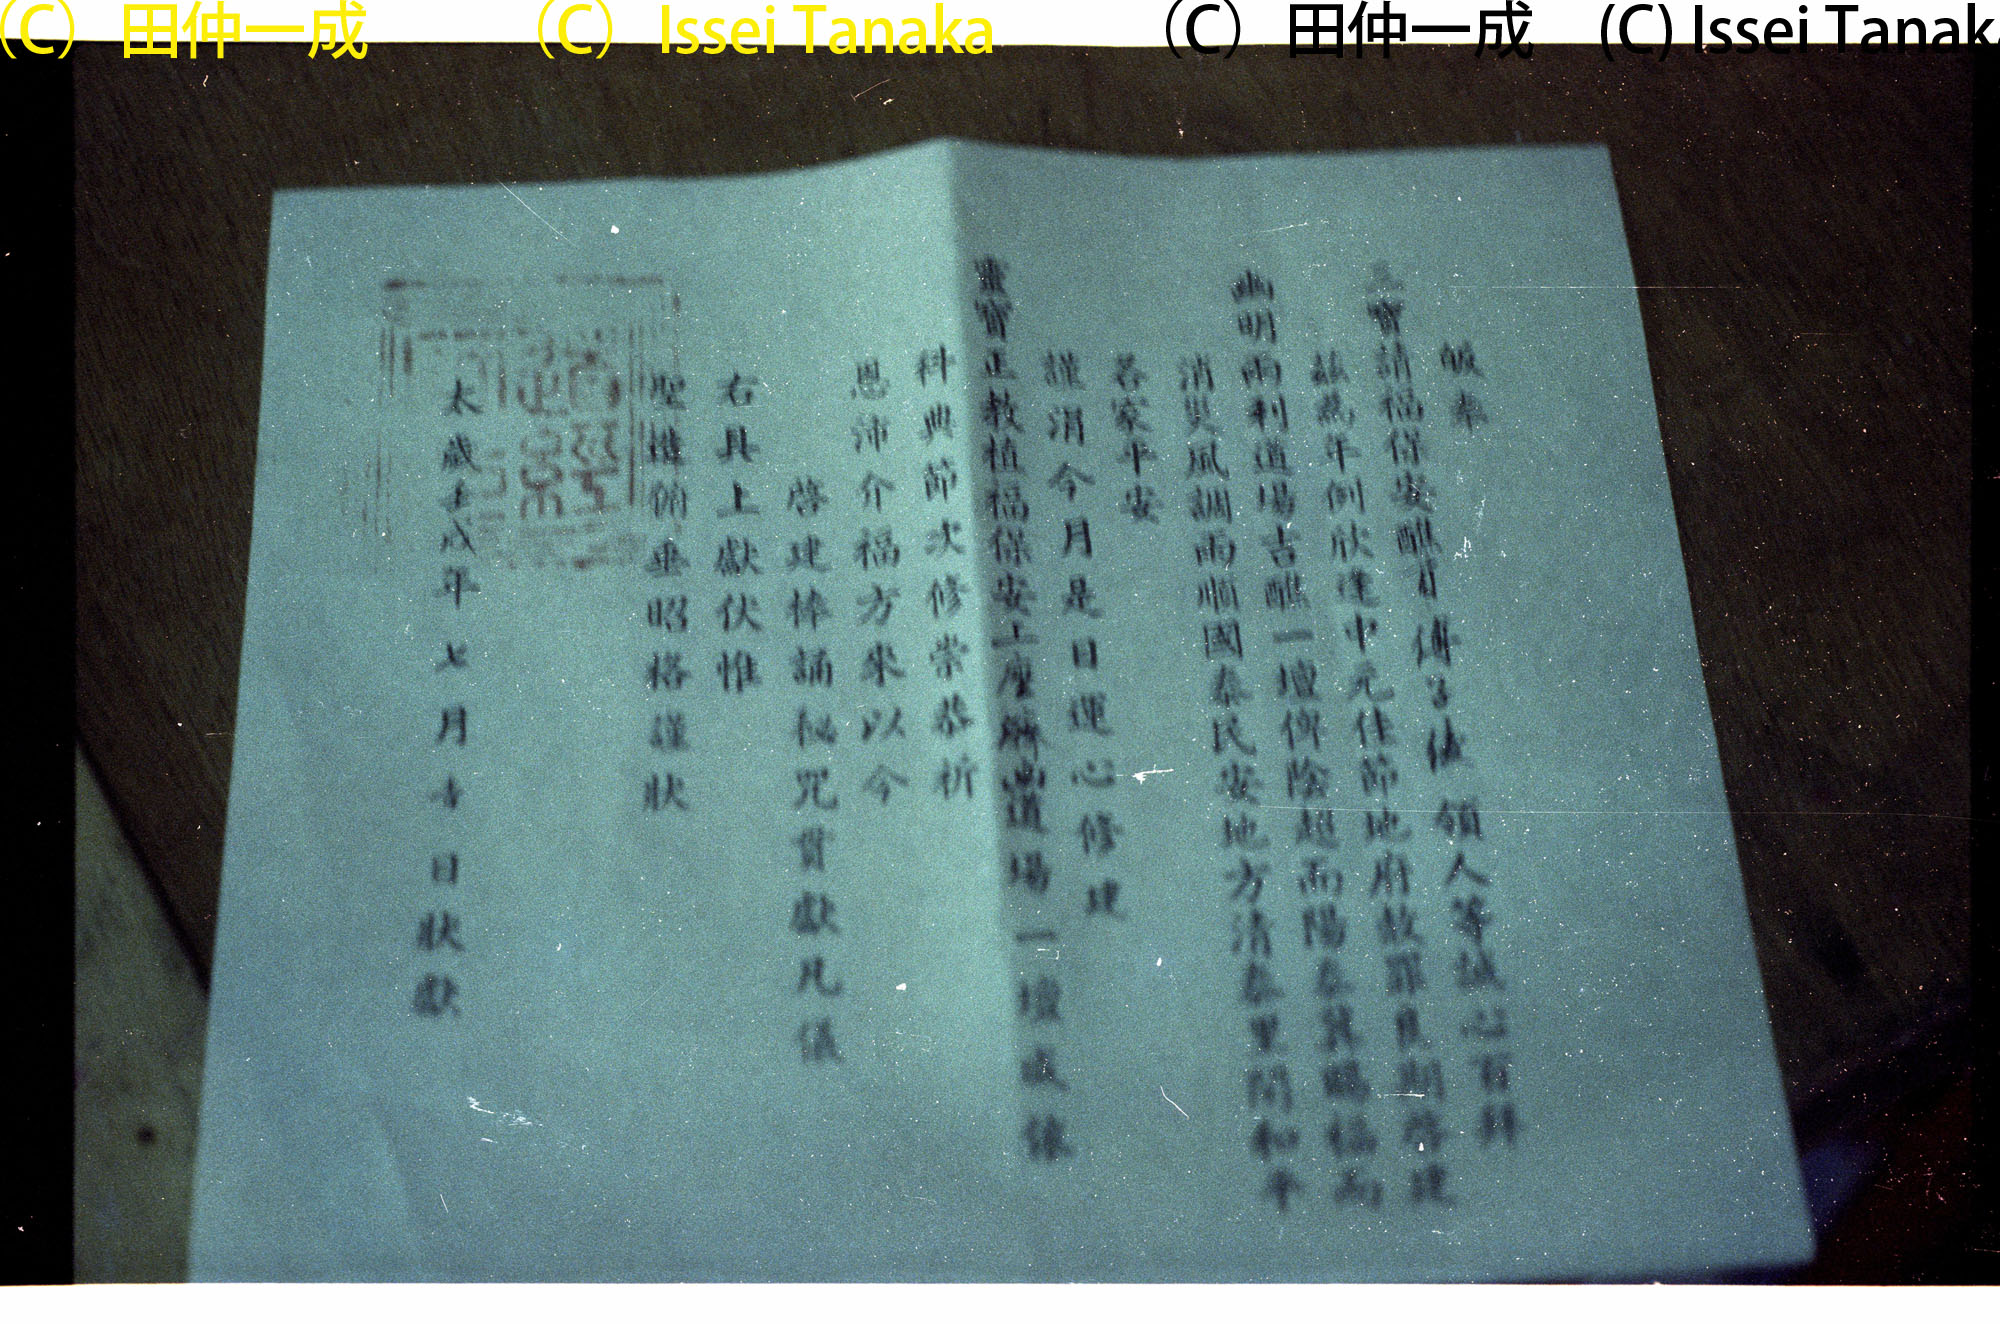 (C) 田仲一成 (C) Issei Tanaka (C) 田仲一成 (C) Issei Tanaka
皈奉
三寶請福保安醮 領人等誠心百拜
茲為年例欣逢中元佳節地府赦罪良期啓建
幽明兩利道場吉醮一壇俾陰超而陽泰賛賜福而
消災風調雨順國泰民安地方清泰里閭和平
各家平安
謹涓今月是日運心修建
靈寶正教植福保安土座 幽道場一壇
科典節次修崇恭祈
恩沛介福方來以今
啓建捧誦秘咒貢獻凡儀
右具上獻伏惟
聖慈俯垂昭格謹狀
太歲壬戌年七月 日狀獻